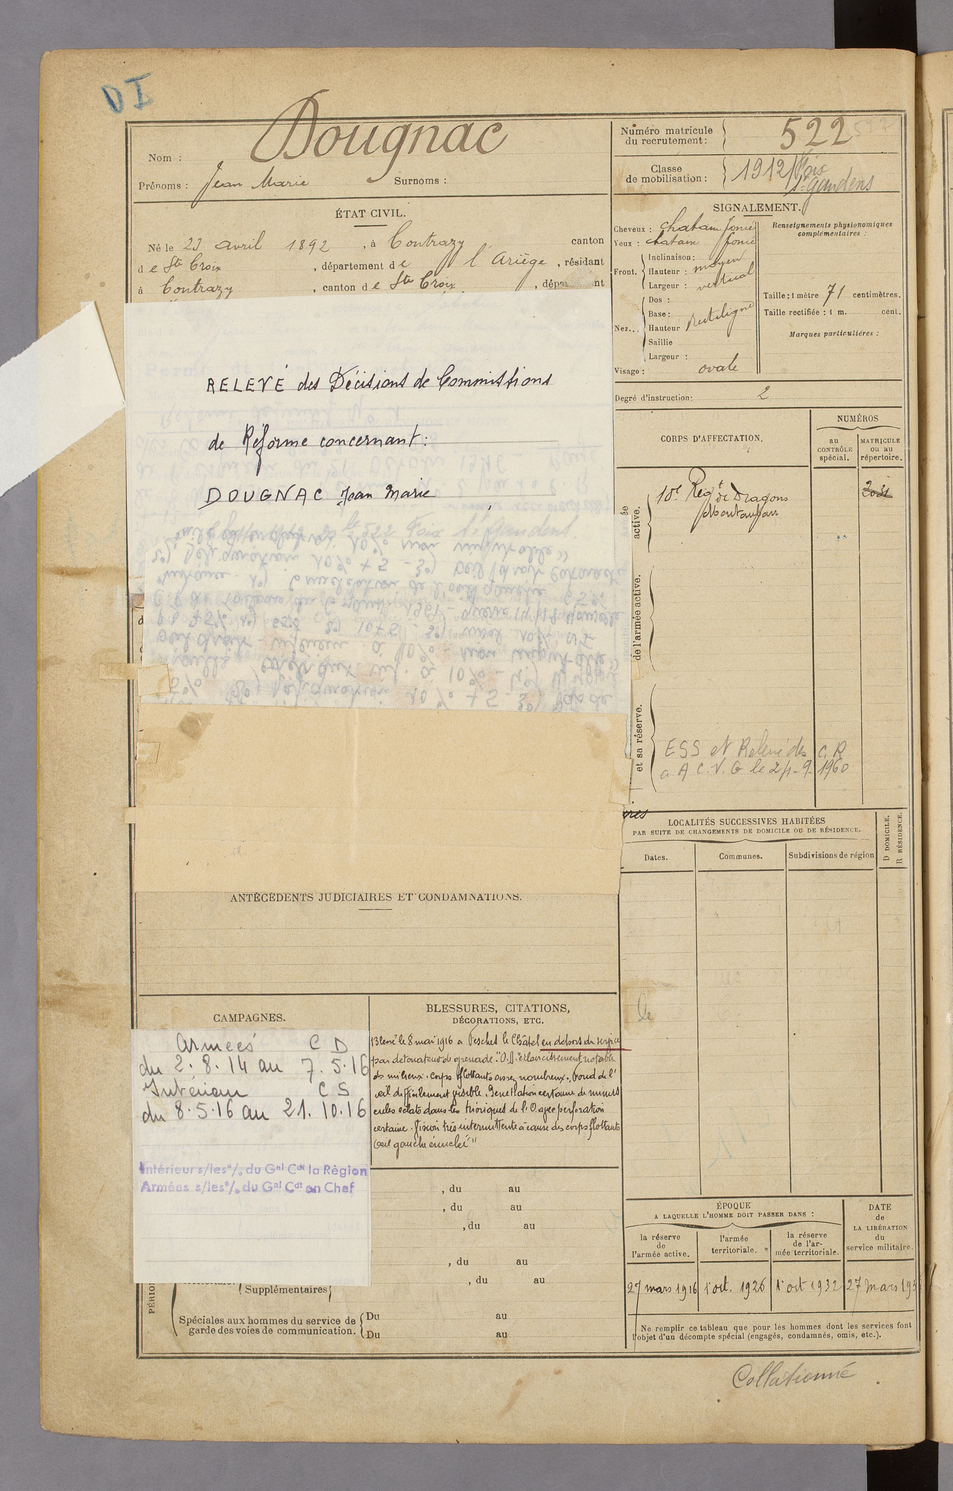 DI
Nom : Dougnac
Prénoms : Jean Marie Surnoms :
ÉTAT CIVIL.
Né le 23 avril 1892, à Contrazy canton
de Ste Croix, département de l'Ariège, résidant
à Contrazy, canton de Ste Croix,
RELEVÉ des Décisions de Commissions
de Réforme concernant :
DOUGNAC Jean Marie
ANTÉCÉDENTS JUDICIAIRES ET CONDAMNATIONS.
CAMPAGNES.
Armées C D
du 2.8.14 au 7.5.16
Intérieur C S
du 8.5.16 au 21.10.16
Intérieur s/les °/. du Gal Cdt la Région
Armées s/les °/. du Gal Cdt en Chef
BLESSURES, CITATIONS,
DÉCORATIONS, ETC.
Blessé le 8 mai 1916 à Peschel le Châtel en dehors du service
par détonateur de grenade. "O.D. Eclaircissement notable
des milieux. Corps flottants assez nombreux. Fond de l'
œil difficilement visible. Pénétration certaine de minus
cules éclats dans les
certaine. Vision très intermittente à cause des corps flottants
(œil gauche énucléé"
, du au
, du au
, du au
, du au
, du au
Supplémentaires
Spéciales aux hommes du service de
garde des voies de communication.
Du au
Du au
Numéro matricule
du recrutement : 522
Classe
de mobilisation : 1912 Foix
St gaudens
SIGNALEMENT.
Cheveux : chatain foncé
Yeux : chatain foncé
Front.
Inclinaison :
Hauteur : moyen
Largeur : vertical
Nez..
Dos :
Base :
Hauteur Rectiligne
Saillie
Largeur :
Visage : ovale
Renseignements physionomiques
complémentaires :
Taille : 1 mètre 71 centimètres.
Taille rectifiée : 1 m. cent.
Marques particulières :
Degré d'instruction : 2
CORPS D'AFFECTATION.
NUMÉROS
au
CONTRÔLE
spécial.
MATRICULE
ou au
répertoire.
active.
10e Regt de Dragons
Montauban
de l'armée active.
et sa réserve.
ESS et Relevé des C.R
a A C.V.G le 21-9-1960
LOCALITÉS SUCCESSIVES HABITÉES
PAR SUITE DE CHANGEMENTS DE DOMICILE OU DE RÉSIDENCE.
Dates.
Communes.
Subdivisions de région
D DOMICILE.
R RÉSIDENCE.
ÉPOQUE
A LAQUELLE L'HOMME DOIT PASSER DANS :
la réserve
de
l'armée active.
l'armée
territoriale.
la réserve
de l'ar-
mée territoriale.
DATE
de
LA LIBÉRATION
du
service militaire.
27 mars 1916
1 oct. 1926
1 oct 1932
27 mars
Ne remplir ce tableau que pour les hommes dont les services font
l'objet d'un décompte spécial (engagés, condamnés, omis, etc.).
Collationné